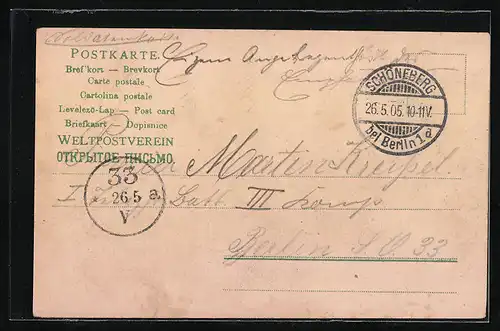 Soldatenkarte
POSTKARTE.
Eigene Angelegenheit des
Empfängers
Bref'kort — Brevkort
Carte postale
Cartolina postale
Levelező-Lap — Post card
Briefkaart — Dopisnice
WELTPOSTVEREIN
ОТКРЫТОЕ ПИСЬМО.
SCHÖNEBERG
26.5.05.10-11V.
bei Berlin 1 a
Martin
33
26.5 a.
V
I Batt. III Komp.
Berlin S.O. 33